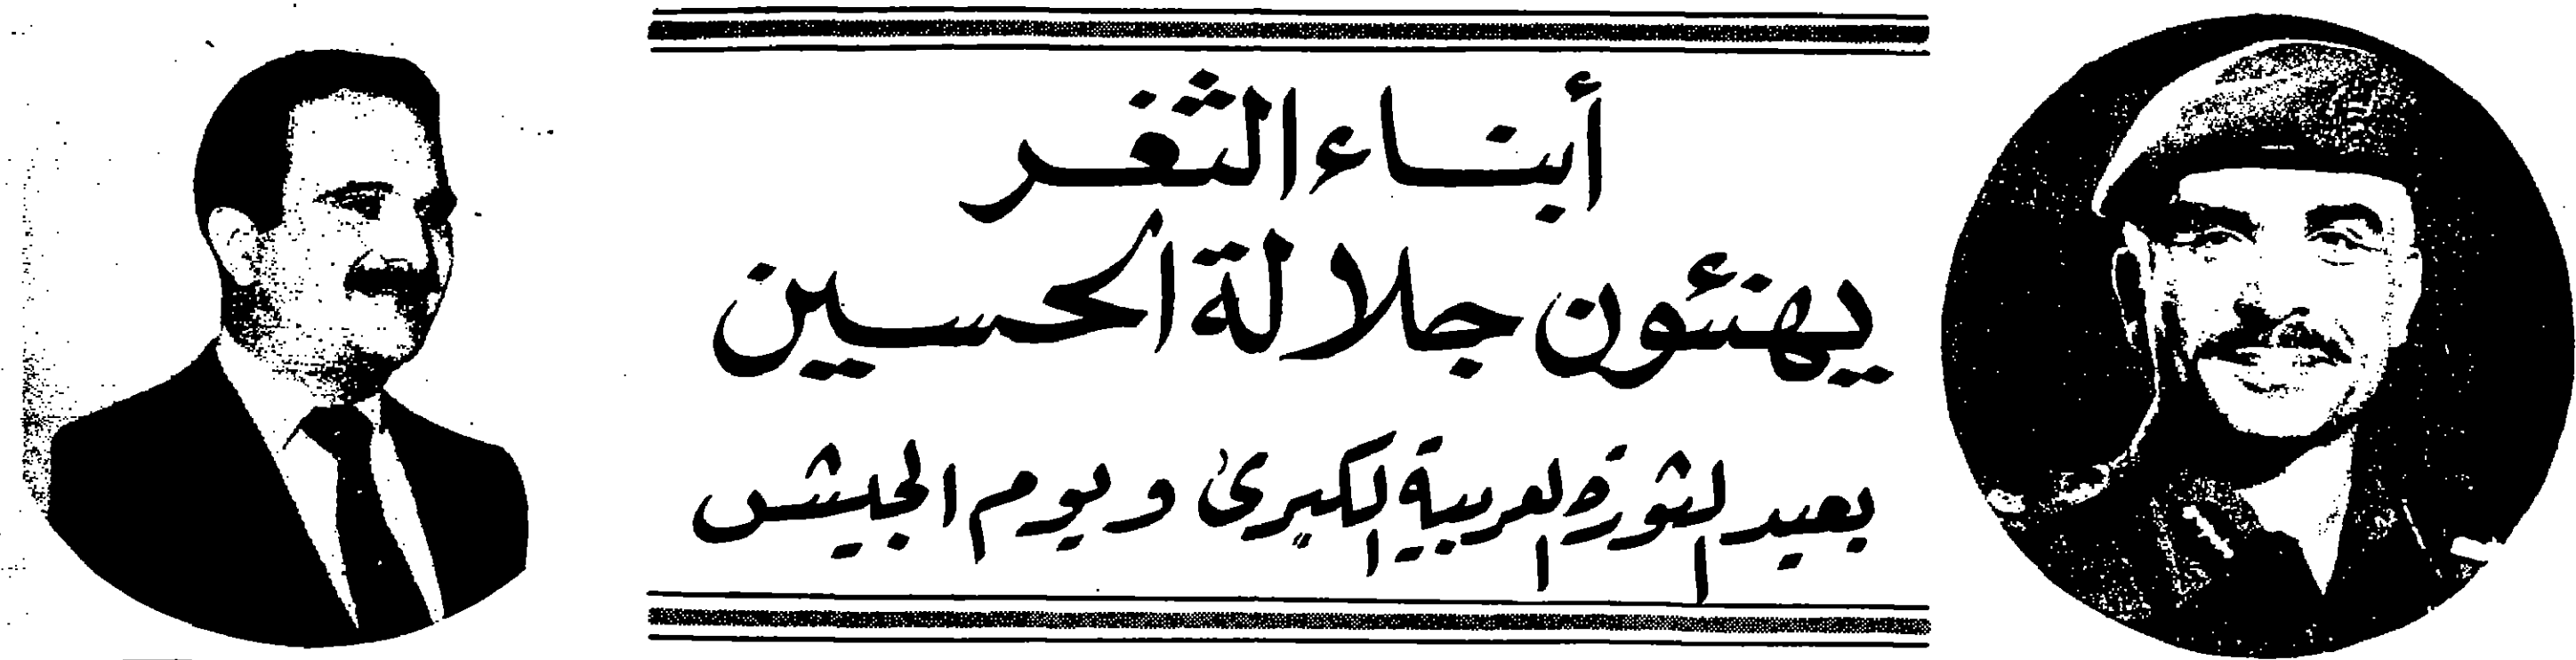 أبناء الثغر
يهنئون جلالة الحسين
بعيد الثورة العربية الكبرى ويوم الجيش